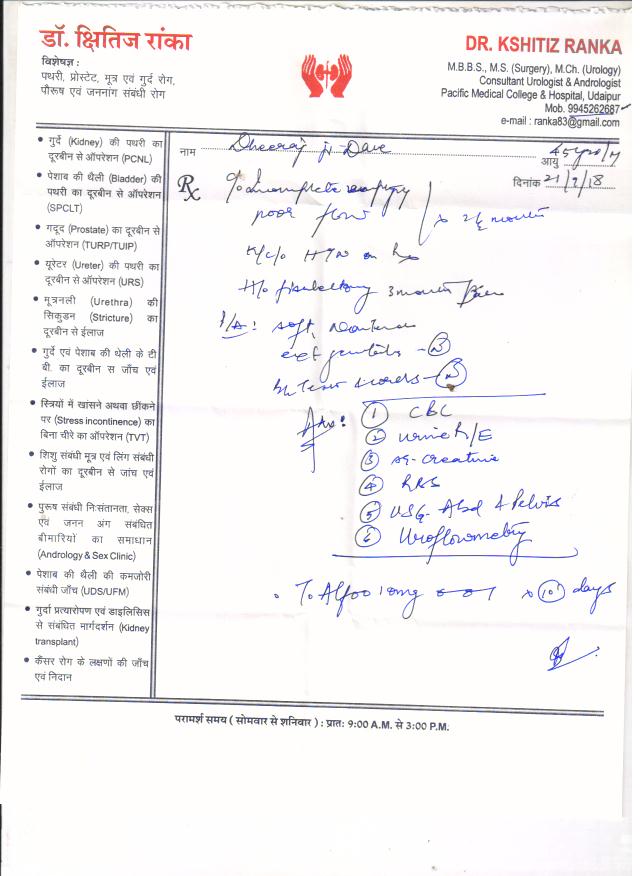 डॉ. क्षितिज रांका
विशेषज्ञ :
पथरी, प्रोस्टेट, मूत्र एवं गुर्द रोग,
पौरूष एवं जननांग संबंधी रोग
DR. KSHITIZ RANKA
M.B.B.S., M.S. (Surgery), M.Ch. (Urology)
Consultant Urologist & Andrologist
Pacific Medical College & Hospital, Udaipur
Mob. 9945262687
e-mail : ranka83@gmail.com
गुर्दे (Kidney) की पथरी का
दूरबीन से ऑपरेशन (PCNL)
पेशाब की थैली (Bladder) की
पथरी का दूरबीन से ऑपरेशन
(SPCLT)
गदूद (Prostate) का दूरबीन से
ऑपरेशन (TURP/TUIP)
यूरेटर (Ureter) की पथरी का
दूरबीन से ऑपरेशन (URS)
मूत्रनली (Urethra) की
सिकुडन (Stricture) का
दूरबीन से ईलाज
गुर्दे एवं पेशाब की थैली के टी
बी. का दूरबीन से जाँच एवं
ईलाज
स्त्रियों में खांसने अथवा छींकने
पर (Stress incontinence) का
बिना चीरे का ऑपरेशन (TVT)
शिशु संबंधी मूत्र एवं लिंग संबंधी
रोगों का दूरबीन से जांच एवं
ईलाज
पुरूष संबंधी नि:संतानता, सेक्स
एवं जनन अंग संबंधित
बीमारियों का समाधान
(Andrology & Sex Clinic)
पेशाब की थैली की कमजोरी
संबंधी जाँच (UDS/UFM)
गुर्दा प्रत्यारोपण एवं डाइलिसिस
से संबंधित मार्गदर्शन (Kidney
transplant)
कैंसर रोग के लक्षणों की जाँच
एवं निदान
नाम Dheeraj Ji Dave
आयु 45 yrs/M
दिनांक 21/7/18
Rx C/o Incomplete
poor flow
K/c/o HTN on Rx
H/o 3 months
P/A: soft, nontender
ext genitalia - N
- N
Adv: 1 CBC
2 Urine R/E
3 Sr. Creatinine
4 RBS
5 USG- Abd & Pelvis
6 Uroflowmetry
T. Alfoo 10mg x 10 days
परामर्श समय ( सोमवार से शनिवार ) : प्रात: 9:00 A.M. से 3:00 P.M.